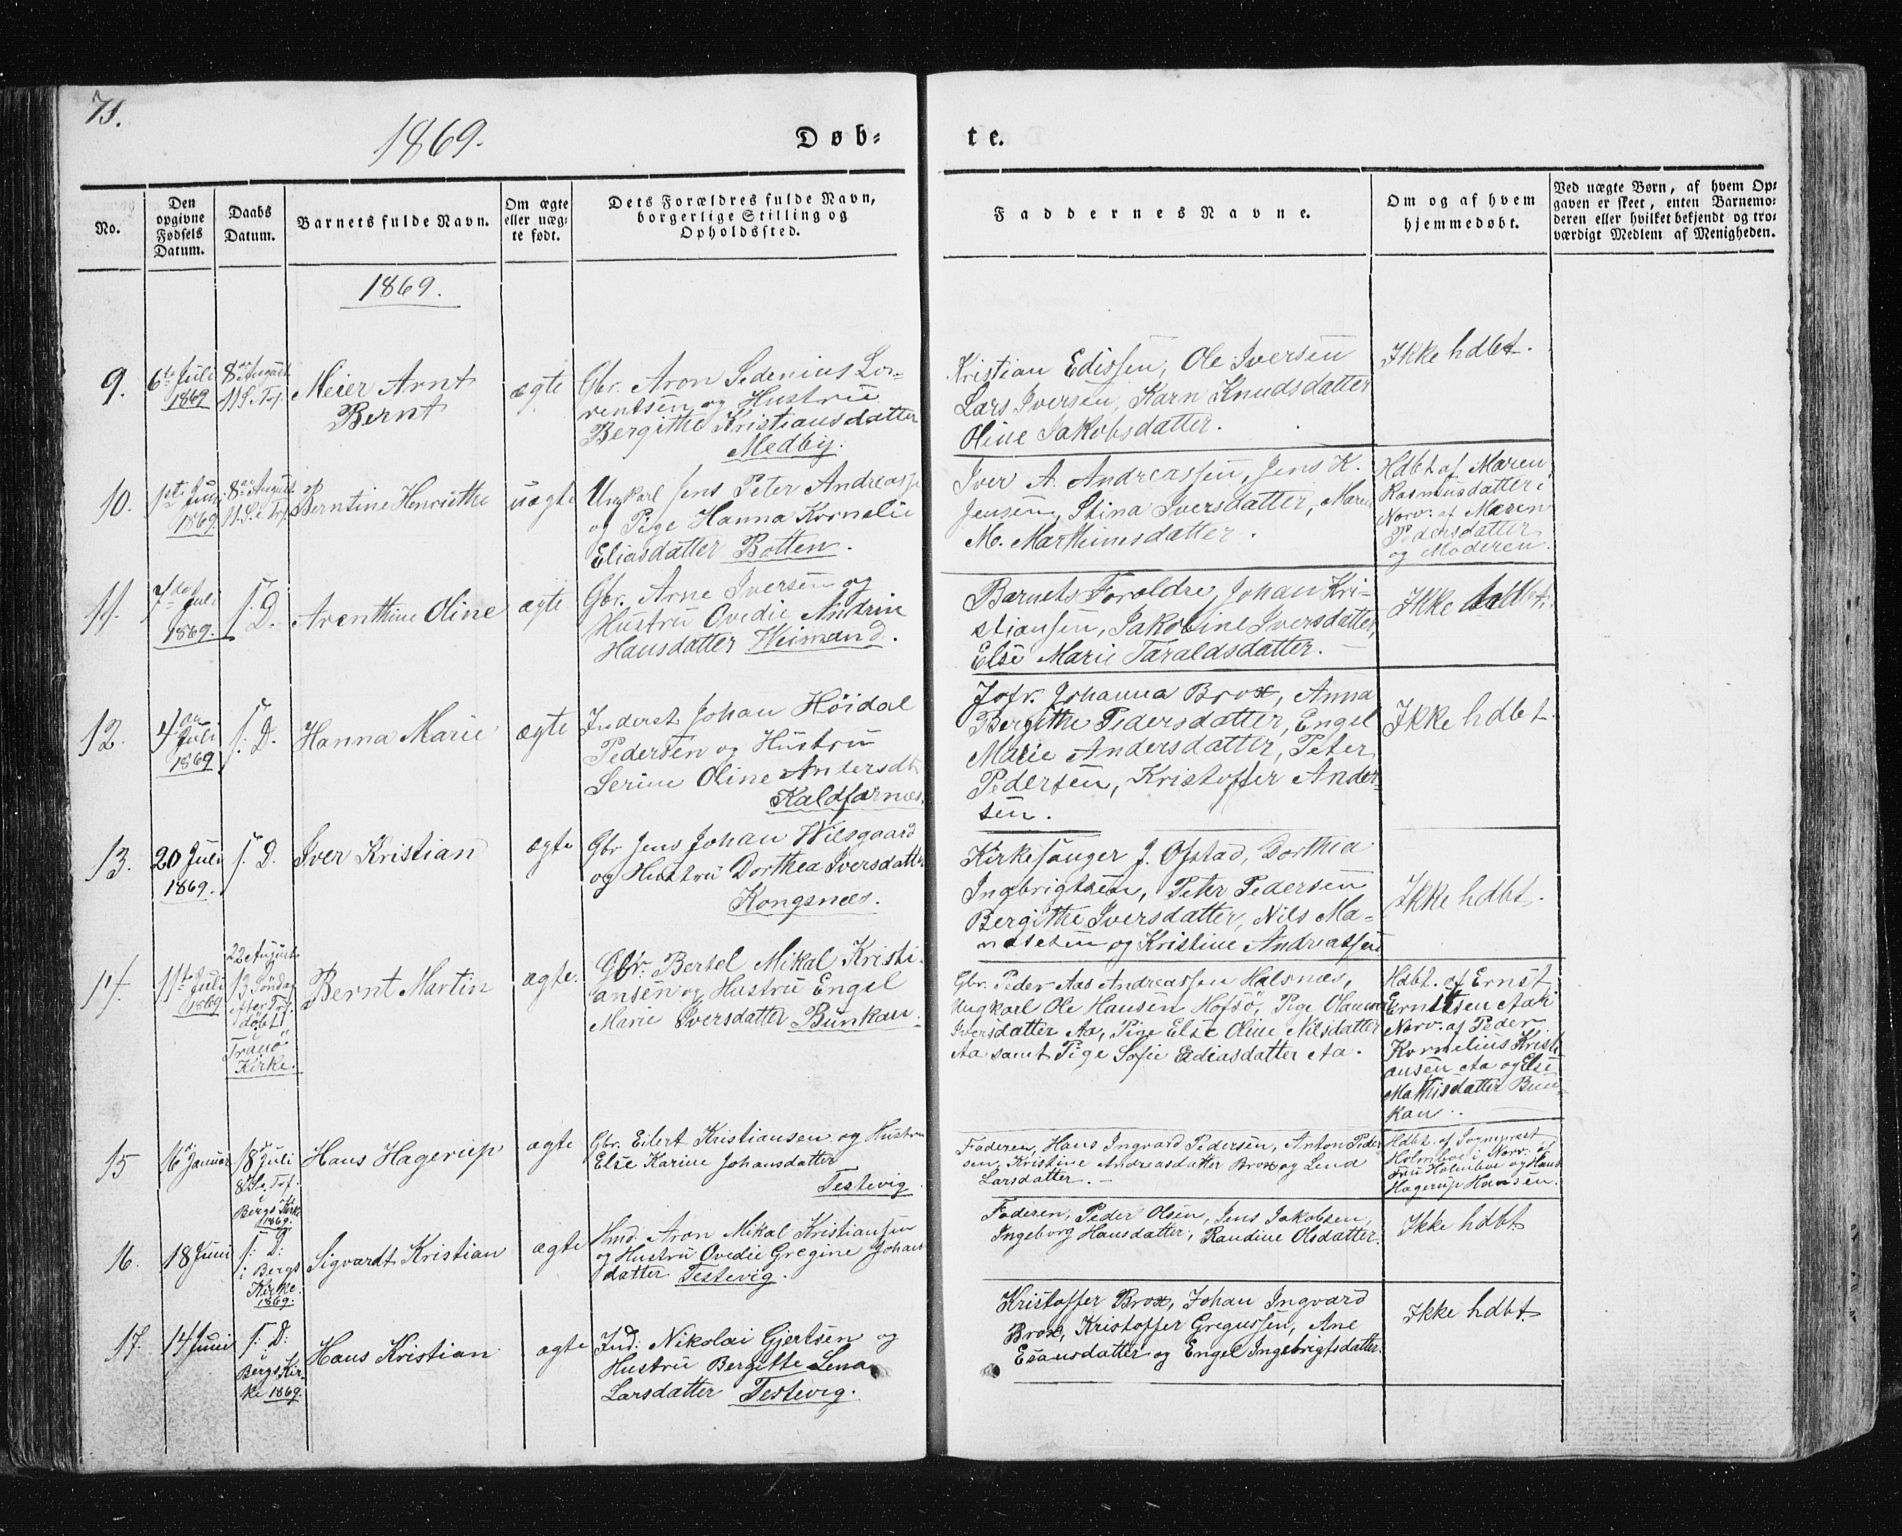 71.
1869.
Døb=
te.
No.
Den
opgivne
Fødsels
Datum.
Daabs
Datum.
Barnets fulde Navn.
Om ægte
eller uæg-
te født.
Dets Forældres fulde Navn,
borgerlige Stilling og
Opholdssted.
Faddernes Navne.
Om og af hvem
hjemmedøbt.
Ved uægte Børn, af hvem Op-
gaven er skeet, enten Barnemo-
deren eller hvilket bekjendt og tro-
værdigt Medlem af Menigheden.
1869.
9.
6te Juli
1869
8de August
11 S. Tr.
Meier Arnt
Bernt
ægte
Gbr. Aron Sedenius Lor-
rentsen og Hustru
Bergithe Kristiansdatter
Medby.
Kristian Edissen, Ole Iversen
Lars Iversen, Karn Knudsdatter
Oline Jakobsdatter.
Ikke hdbt.
10.
1ste Juni
1869
8de August
11 S. e. Trf.
Berntine Henriethe
uægte
Ungkarl Jens Peter Andreass.
og Pige Hanna Kornelie
Eliasdatter Botten.
Iver A. Andreassen, Jens K.
Jensen, Stina Iversdatter, Maren
M. Marthinusdatter.
Hdbt af Maren
Rasmusdatter i
Norv. af Maren
Pedersdatter
og Moderen.
11.
7de Juli
1869.
S. D.
Arenthine Oline
ægte
Gbr. Arne Iversen og
Hustru Ovedie Andrin
Hansdatter Heimand.
Barnets Forældre, Johan Kri-
stiansen, Jakobine Iversdatter,
Else Marie Taraldsdatter.
Ikke
12.
4de
Juli
1869
S. D.
Hanna Marie
ægte
Inderst Johan Höidal
Pedersen og Hustru
Serine Oline Andersdt
Kaldfarnes.
Jofr. Johanna Brox, Anna
Bergithe Pedersdatter, Engel
Marie Andersdatter, Peter
Pedersen, Kristoffer Ander-
sen.
Ikke hdbt.
13.
20 Juli
1869.
S. D.
Iver Kristian
ægte
Gbr Jens Johan Wilsgaard
og Hustru Dorthea Iversdatter
Kongsnæs.
Kirkesanger J. Ofstad, Dorthea
Ingebrigtsen, Peter Pedersen
Bergithe Iversdatter, Nils Ma-
nasesen og Kristine Andreassen
Ikke hdbt.
14.
11te Juli
1869
22 August
13 Söndag
efter Trf.
döbt i
Tranö
Kirke.
Bernt Martin
ægte.
Gbr. Bertel Mikal Kristi-
ansen og Hustru Engel
Marie Iversdatter Bunkan.
Gbr. Peder Aas Andreassen Halsnæs,
Ungkarl Ole Hansen Hofsö, Pige Olauna
Iversdatter Aa, Pige Else Oline Nilsdatter
Aa samt Pige Sofie Ediasdatter Aa.
Hdbt. af Ernst
Erntsen Aa i
Norv. af Peder
Kornelius Kristi
ansen Aa og Else
Mathisdatter Bun-
kan.
15
16de Januar
18de Juli
8de S. e. Trf.
i
Bergs Kirke
1869.
Hans Hagerup
ægte
Gbr. Eilert Kristiansen og Hustru
Else Karine Johansdatter
Testevig
Faderen, Hans Ingvard Pedersen, Anton Peder-
sen, Kristine Andreasdatter Brox og Lena
Larsdatter.
Hdbt. af Sognepræst
Holmboe i Norv. af
Fru Holmboe og Hans
Hagerup Hansen.
16.
18 Juni
S: D:
i Bergs
Kirke.
1869.
Sigvardt Kristian
ægte
Hmd Aron Mikal Kristiansen
og Hustru Ovedie Gregine Johans
datter Testevig.
Faderen, Peder Olsen, Jens Jakobsen,
Ingeborg Hansdatter, Randine Olsdatter.
Ikke hdbt
17.
14 Juni
S: D:
i
Bergs Kir-
ke 1869.
Hans Kristian
ægte
Ind: Nikolai Gjertsen og
Hustru Bergitte Lena
Larsdatter Testevig.
Kristoffer Brox, Johan Ingvard
Brox, Kristoffer Gregussen, Ane
Esausdatter og Engel Ingebrigtsdatter.
Ikke hdbt